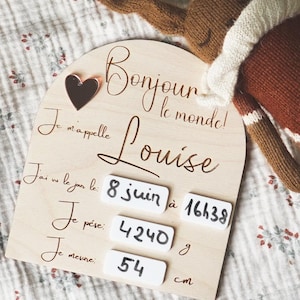 Bonjour
le monde!
Je m'appelle
Louise
J'ai vu le jour le: 8 juin à 16h38
Je pèse: 4240 g
Je mesure: 54 cm